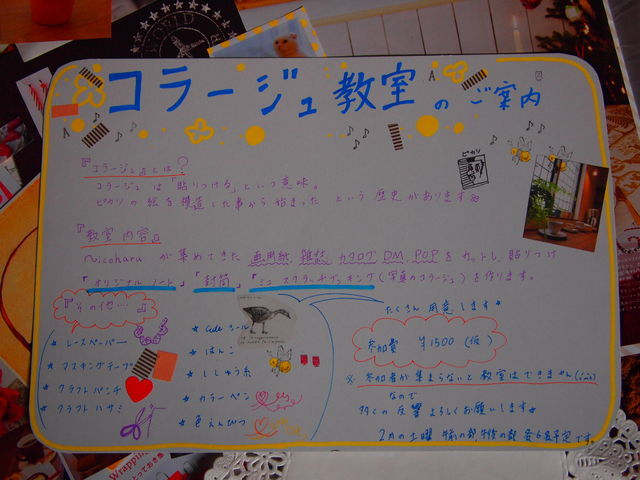 コラージュ教室のご案内
『コラージュ』とは?
コラージュは「貼りつける」という意味。
ピカソの絵を模造した事から始まったという歴史があります
ピカソ
『教室内容』
nicoharuが集めてきた画用紙 雑誌 カタログ DM、POPをカットし、貼りつけ
「オリジナルノート」「封筒」「ミニスクラップブッキング」(写真のコラージュ)を作ります。
『その他…』
★レースペーパー
★マスキングテープ
★クラフトパンチ
★クラフトハサミ
★cuteシール
★はんこ
★ししゅう糸
★カラーペン
★色えんぴつ
たくさん用意します
参加費 ¥1500(仮)
※参加者が集まらないと教室はできません
なので
多くの反響よろしくお願いします
2月の土曜 午前の部,午後の部 各6名予定です。
WORLD
Wrapping